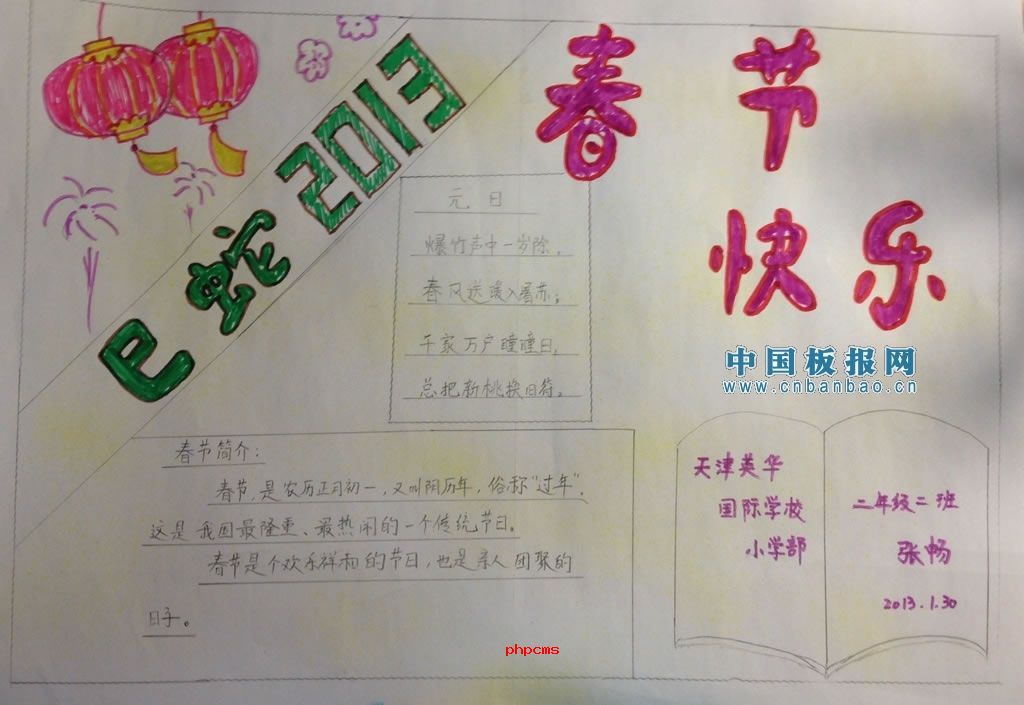 春节
快乐
巳蛇2013
元日
爆竹声中一岁除，
春风送暖入屠苏；
千家万户瞳瞳日，
总把新桃换旧符。
中国板报网
www.cnbanbao.cn
春节简介：
春节，是农历正月初一，又叫阴历年，俗称“过年”。
这是我国最隆重、最热闹的一个传统节日。
春节是个欢乐祥和的节日，也是亲人团聚的
日子。
天津英华
国际学校
小学部
二年级二班
张畅
2013.1.30
phpcms